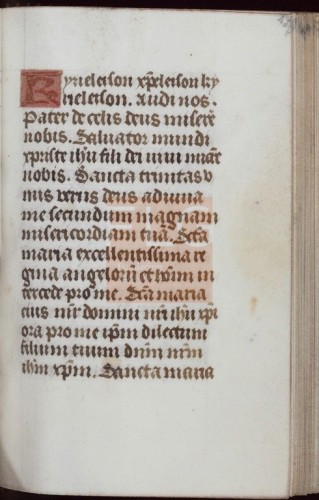 Kyrieleison xp̄eleison ky
rieleison. Audi nos.
Pater de celis deus miserē
nobis. Saluator mundi
xpriste ih̄u fili dei uiui miserē
nobis. Sancta trinitas v
nus verus deus adiuua
me secundum magnam
misericordiam tuā. Sctā
maria excellentissima re
gina angelorū et hoīm in
tercede pro me. Sctā maria
eius nr̄i domini nr̄i ih̄u xp̄i
ora pro me ip̄m dilectum
filium tuum dn̄m nr̄m
ih̄m xp̄m. Sancta maria